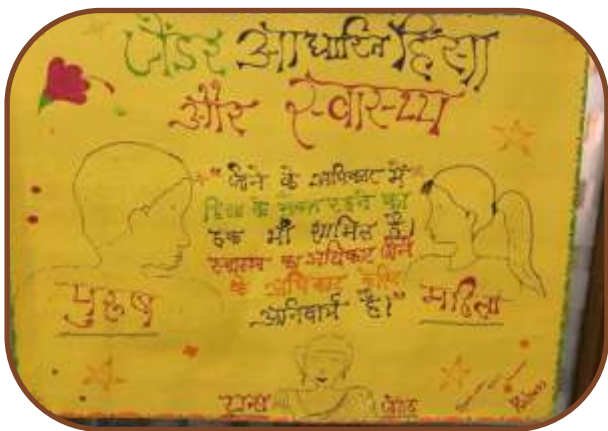 जेंडर आधारित हिंसा
और स्वास्थ्य
"जीने के अधिकार में
हिंसा के मुक्त रहने का
हक भी शामिल है।
स्वास्थ्य का अधिकार जीने
के अधिकार
अनिवार्य है।"
पुरुष
महिला